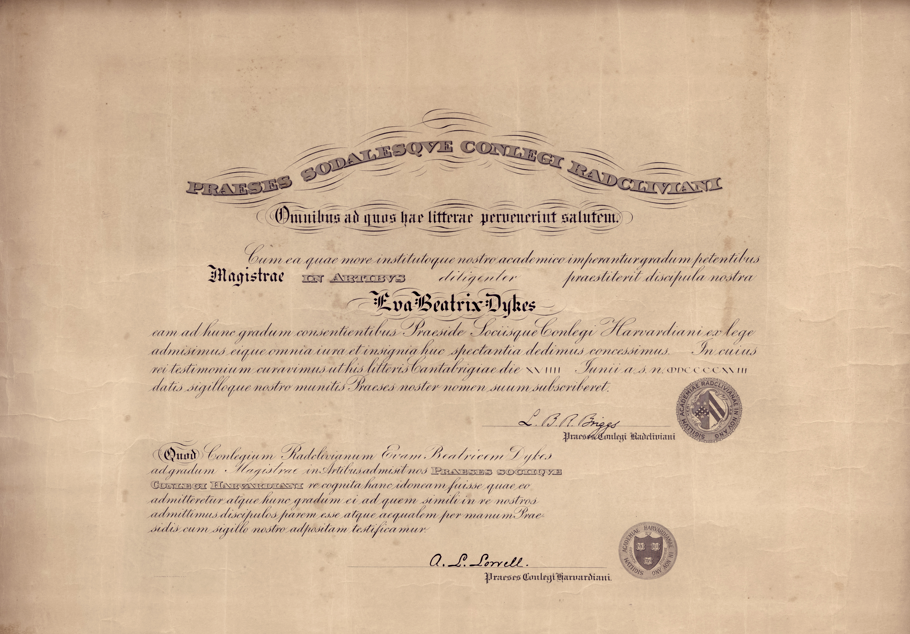 PRAESES SODALESQVE CONLEGI RADCLIVIANI
Omnibus ad quos hae litterae pervenerint salutem.
Cum ea quae more institutoque nostro academico imperantur gradum petentibus
Magistrae IN ARTIBVS diligenter praestiterit discipula nostra
Eva Beatrix Dykes
eam ad hunc gradum consentientibus Praeside Sociisque Conlegi Harvardiani ex lege
admisimus eique omnia iura et insignia huc spectantia dedimus concessimus. In cuius
rei testimonium curavimus ut his litteris Cantabrigiae die Iunii a. s. n.
datis sigilloque nostro munitis Praeses noster nomen suum subscriberet.
L. B. R. Briggs
Praeses Conlegi Radcliviani
Quod Conlegium Radclivianum Evam Beatricem Dykes
ad gradum Magistrae in Artibus admisit nos PRAESES SOCIIQVE
CONLEGI HARVARDIANI recognita hanc idoneam fuisse quae eo
admitteretur atque hunc gradum ei ad quem simili in re nostros
admittimus discipulos parem esse atque aequalem per manum Prae-
sidis cum sigillo nostro adpositam testificamur.
A. L. Lowell.
Praeses Conlegi Harvardiani.